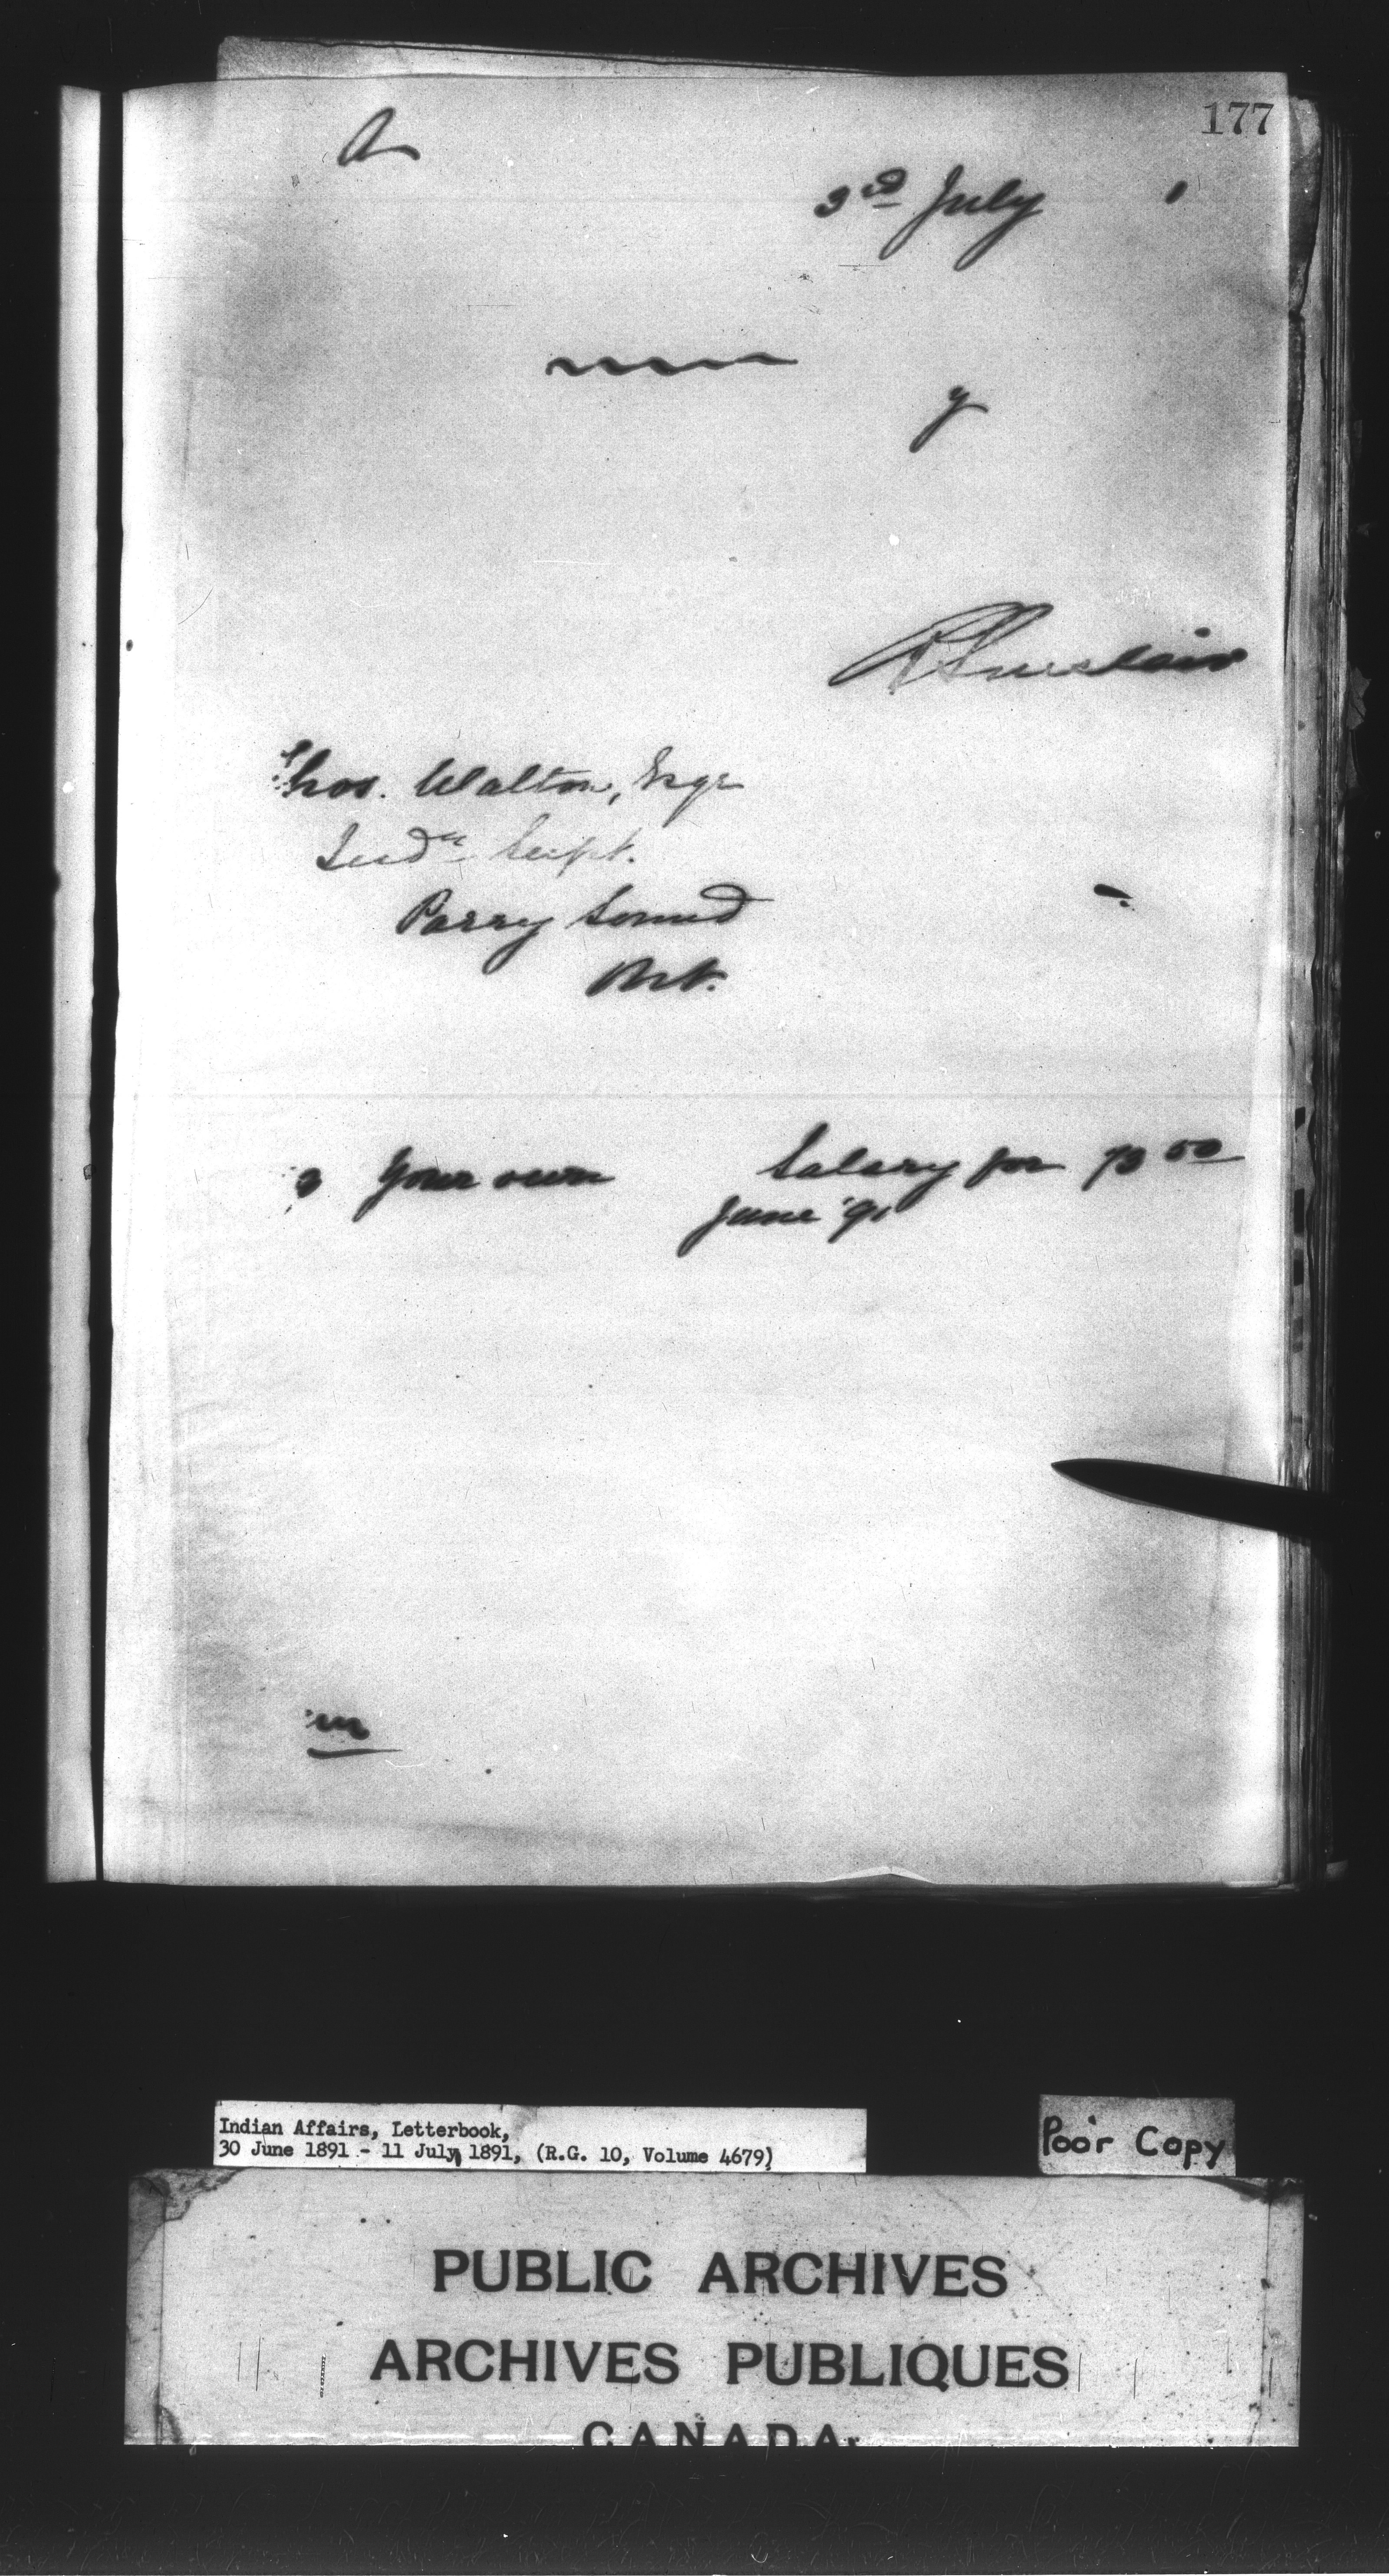 177
A
3rd July 1
y
R Sinclair
Thos. Walton, Esqr
Indn Supt.
Parry Sound
Ont.
Your own Salary for
June '91
Indian Affairs, Letterbook,
30 June 1891 - 11 July 1891, (R.G. 10, Volume 4679)
Poor Copy
PUBLIC ARCHIVES
ARCHIVES PUBLIQUES
CANADA